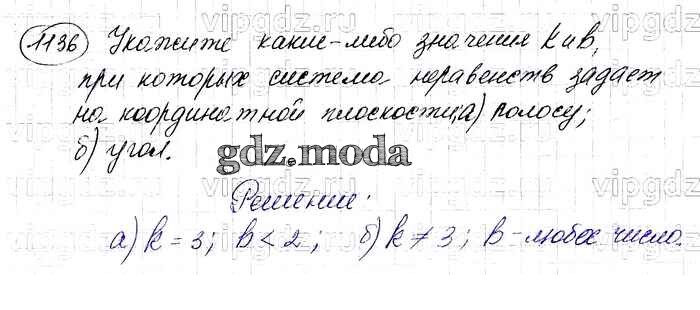 1136 Укажите какие-либо значения k и b,
при которых система неравенств задает
на координатной плоскости: а) полосу;
б) угол.
gdz.moda
Решение:
а) k = 3; b < 2; б) k ≠ 3; b - любое число.
vipgdz
vipgdz
vipgdz
vipgdz